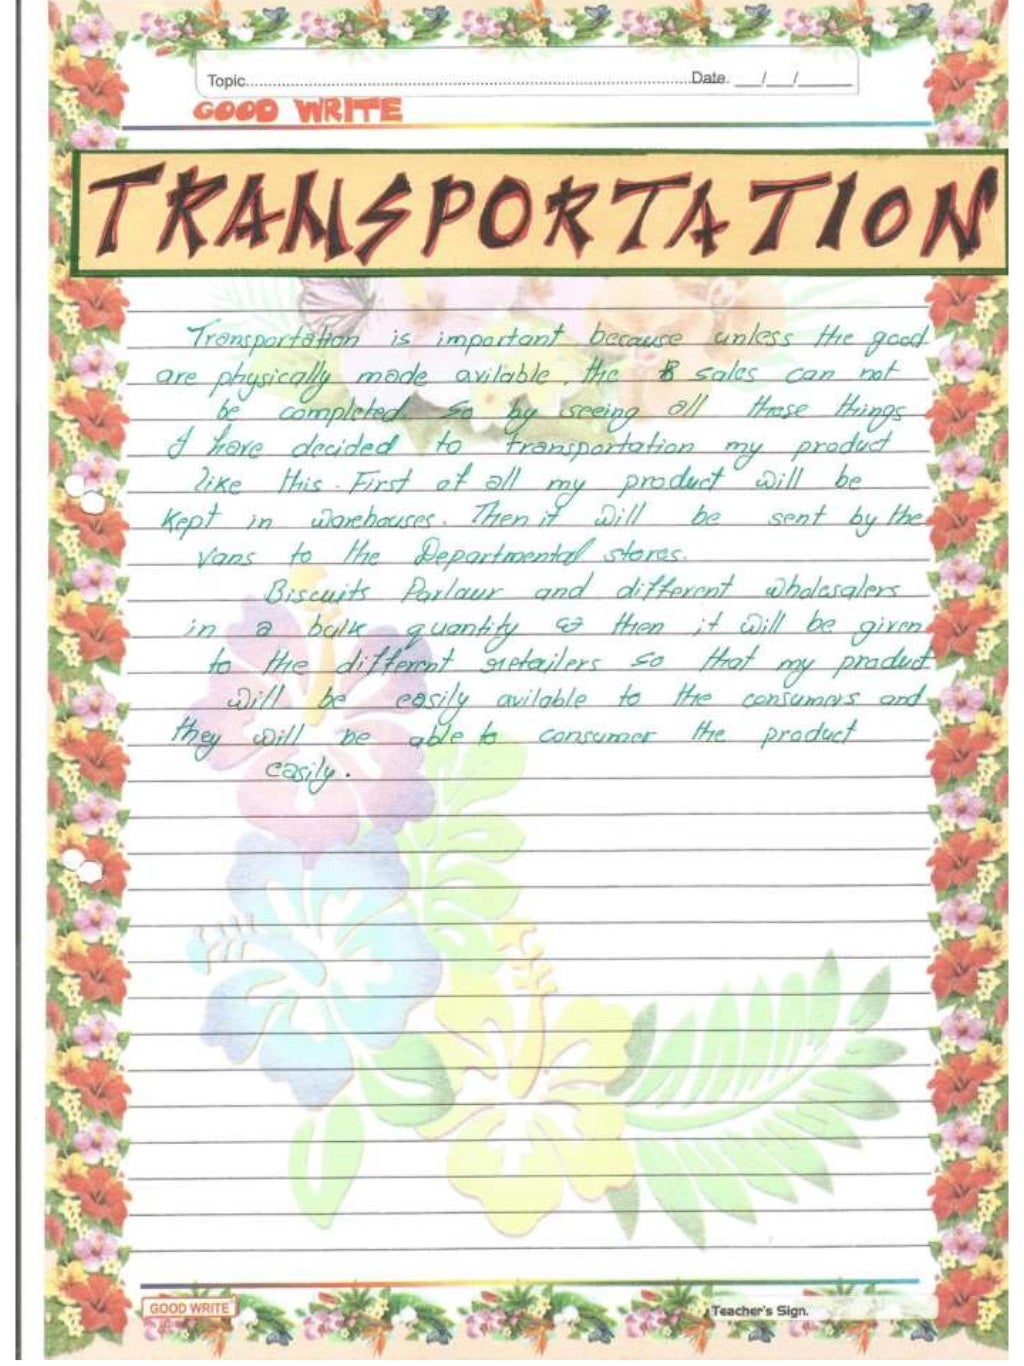 Topic........................Date.__/__/____
GOOD WRITE
TRANSPORTATION
Transportation is important because unless the good
are physically made avilable, the B sales can not
be completed. So by seeing all these things
I have decided to transportation my product
like this. First of all my product will be
Kept in warehouses. Then it will be sent by the
Vans to the Departmental stores.
Biscuits Parlaur and different wholesalers
in a bulk quantity & then it will be given
to the different retailers so that my product
will be easily avilable to the consumers and
they will be able to consumer the product
easily.
GOOD WRITE
Teacher's Sign.